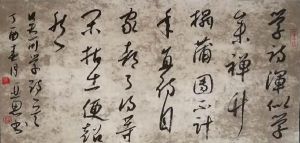 学诗浑似学
参禅竹
榻蒲團不计
年直待自
家都了得等
闲拈出便超
然
吴可学诗一首
丁酉春月
书